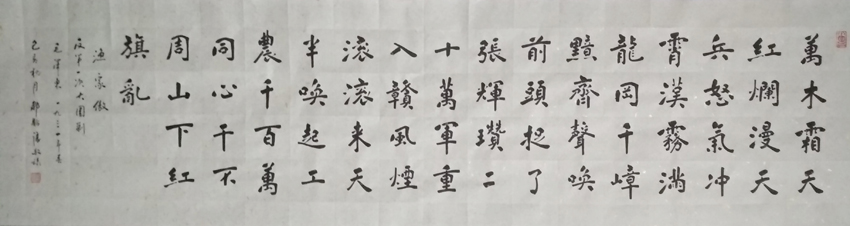 萬木霜天
紅爛漫天
兵怒氣冲
霄漢霧滿
龍岡千嶂
黯齊聲喚
前頭捉了
張輝瓚二
十萬軍重
入贛風煙
滚滚来天
半喚起工
農千百萬
同心干不
周山下紅
旗亂
渔家傲
反第一次大圍剿
毛澤東 一九三一年春
己亥秋月